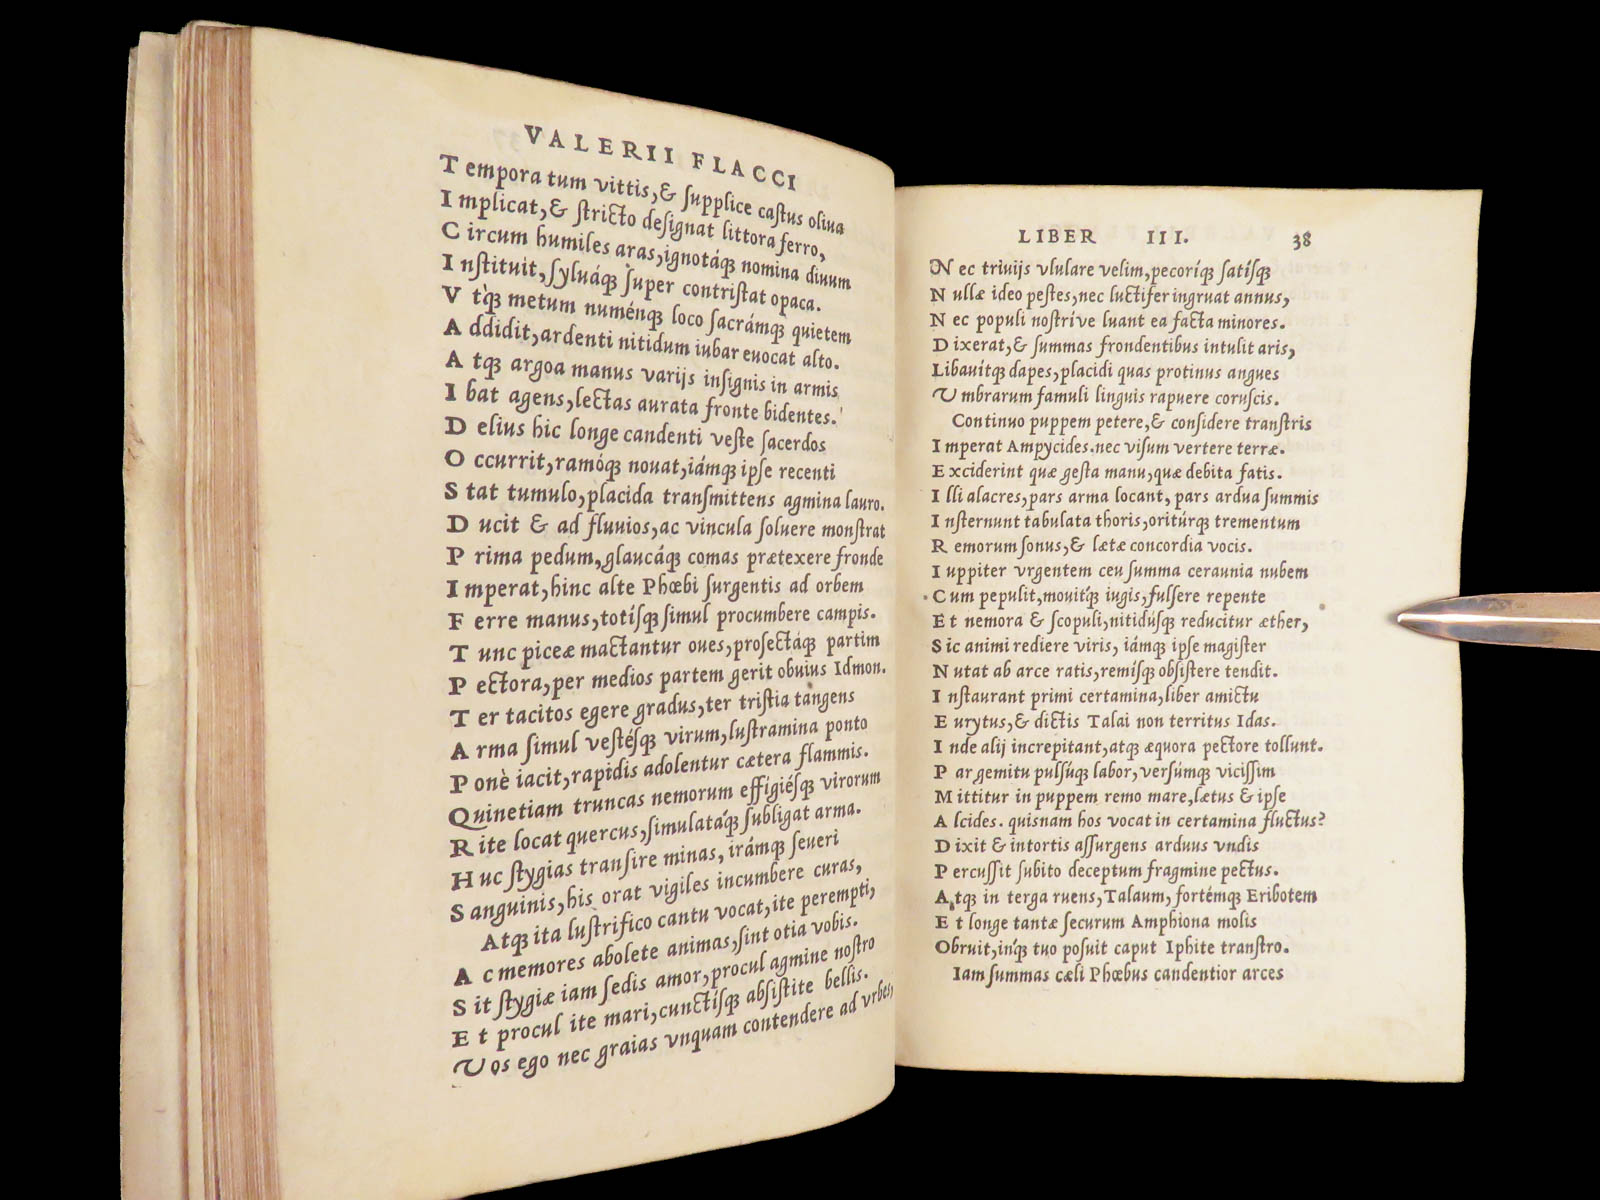 VALERII FLACCI
T empora tum vittis,& ſupplice caſtus oliua
I mplicat,& ſtricto deſignat littora ferro,
C ircum humiles aras,ignotáqꝫ nomina diuum
I nſtituit,ſyluáqꝫ ſuper contriſtat opaca.
V t'qꝫ metum numénqꝫ loco ſacrámqꝫ quietem
A ddidit,ardenti nitidum iubar euocat alto.
A tqꝫ argoa manus varijs inſignis in armis
I bat agens,lectas aurata fronte bidentes.
D elius hic longe candenti veſte ſacerdos
O ccurrit,ramóqꝫ nouat,iámqꝫ ipſe recenti
S tat tumulo,placida tranſmittens agmina lauro.
D ucit & ad fluuios,ac vincula ſoluere monſtrat
P rima pedum,glaucáqꝫ comas prætexere fronde
I mperat,hinc alte Phœbi ſurgentis ad orbem
F erre manus,totíſqꝫ ſimul procumbere campis.
T unc piceæ mactantur oues,proſectáqꝫ partim
P ectora,per medios partem gerit obuius Idmon.
T er tacitos egere gradus,ter triſtia tangens
A rma ſimul veſtéſqꝫ virum,luſtramina ponto
P onè iacit,rapidis adolentur cætera flammis.
Quinetiam truncas nemorum effigiéſqꝫ virorum
R ite locat quercus,ſimulatáqꝫ ſubligat arma.
H uc ſtygias tranſire minas, irámqꝫ ſeueri
S anguinis,his orat vigiles incumbere curas,
Atqꝫ ita luſtrifico cantu vocat,ite perempti,
A c memores abolete animas,ſint otia vobis.
S it ſtygiæ iam ſedis amor,procul agmine noſtro
E t procul ite mari,cunctíſqꝫ abſiſtite bellis.
V os ego nec graias vnquam contendere ad vrbes,
LIBER III. 38
N ec triuijs vlulare velim,pecoríqꝫ ſatíſqꝫ
N ullæ ideo peſtes,nec luctifer ingruat annus,
N ec populi noſtríve luant ea facta minores.
D ixerat,& ſummas frondentibus intulit aris,
L ibauítqꝫ dapes,placidi quas protinus angues
V mbrarum famuli linguis rapuere coruſcis.
Continuo puppem petere,& conſidere tranſtris
I mperat Ampycides.nec viſum vertere terræ.
E xciderint quæ geſta manu,quæ debita fatis.
I lli alacres,pars arma locant, pars ardua ſummis
I nſternunt tabulata thoris,oritúrqꝫ trementum
R emorum ſonus,& lætæ concordia vocis.
I uppiter vrgentem ceu ſumma ceraunia nubem
C um pepulit,mouítqꝫ iugis,fulſere repente
E t nemora & ſcopuli,nitidúſqꝫ reducitur æther,
S ic animi rediere viris, iámqꝫ ipſe magiſter
N utat ab arce ratis,remíſqꝫ obſiſtere tendit.
I nſtaurant primi certamina,liber amictu
E urytus,& dictis Talai non territus Idas.
I nde alij increpitant,atqꝫ æquora pectore tollunt.
P ar gemitu pulſúqꝫ labor,verſúmqꝫ viciſſim
M ittitur in puppem remo mare,lætus & ipſe
A lcides. quisnam hos vocat in certamina fluctus?
D ixit & intortis aſſurgens arduus vndis
P ercuſſit ſubito deceptum fragmine pectus.
A tqꝫ in terga ruens,Talaum,fortémqꝫ Eribotem
E t longe tantæ ſecurum Amphiona molis
O bruit,ínqꝫ tuo poſuit caput Iphite tranſtro.
Iam ſummas cæli Phœbus candentior arces